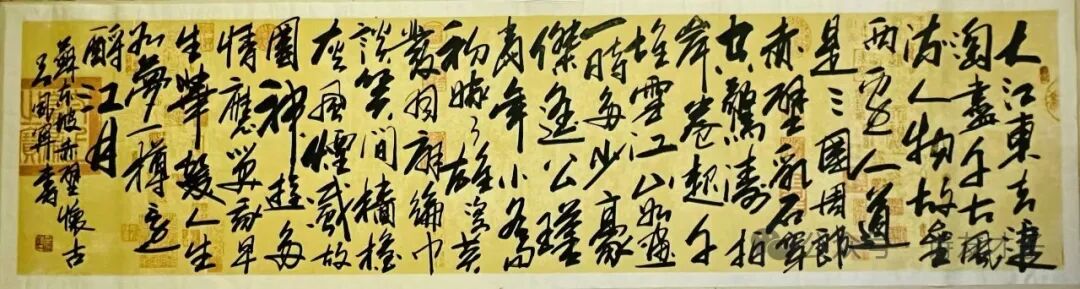 大江東去浪
淘盡千古風
流人物故壘
西邊人道
是三國周郎
赤壁亂石穿
空驚濤拍
岸卷起千
堆雪江山如畫
一時多少豪
傑遙公瑾
當年小喬
初嫁了雄姿英
發羽扇綸巾
談笑間檣櫓
灰飛煙滅故
國神遊多
情應笑我早
生華髮人生
如夢一樽還
酹江月
蘇東坡赤壁懷古
王 書